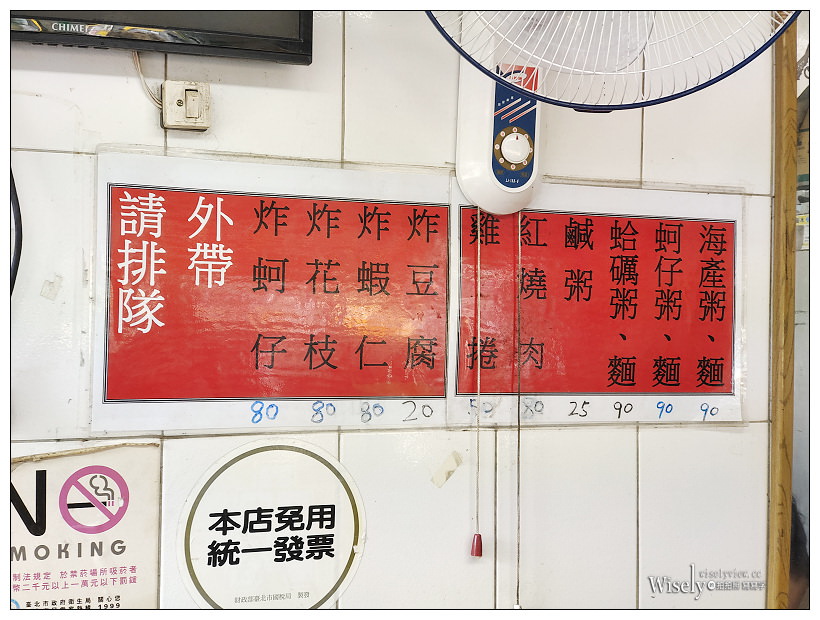 CHIMEI
海產粥、麵 90
蚵仔粥、麵 90
蛤礪粥、麵 90
鹹粥 25
紅燒肉 80
雞捲 50
炸豆腐 20
炸蝦仁 80
炸花枝 80
炸蚵仔 80
外帶
請排隊
NO
SMOKING
制法規定 於禁菸場所吸菸者
幣二千元以上一萬元以下罰鍰
臺北市政府衛生局 關心您
1999
本店免用
統一發票
財政部臺北市國稅局 製發
wiselyview.cc
Wisely
拍拍照 寫寫字